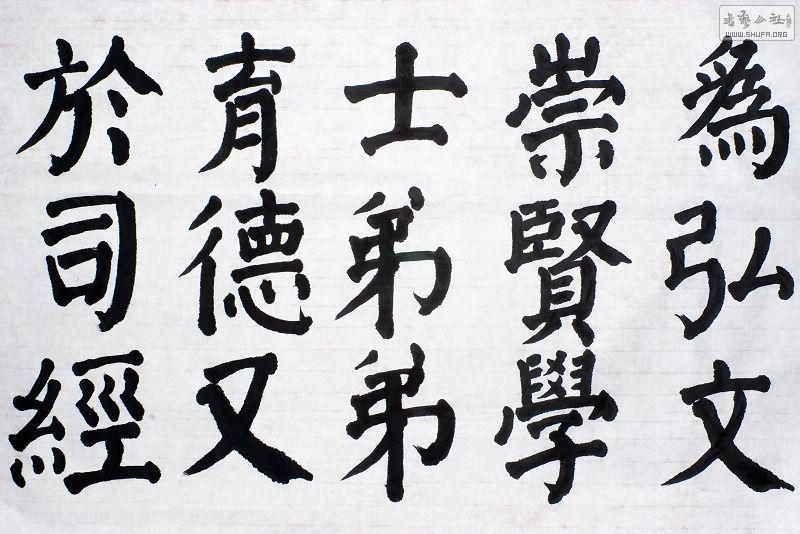 為弘文
崇賢學
士弟弟
育德又
於司經
书艺公社
WWW.SHUFA.ORG